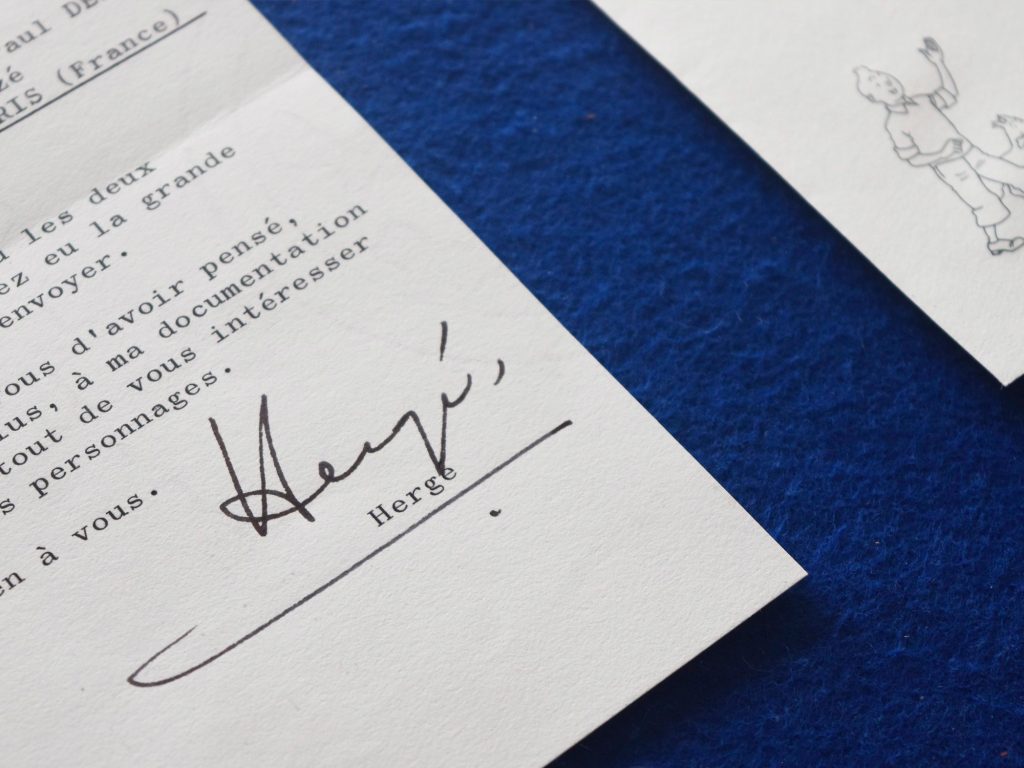 aul
zé
RIS (France)
les deux
ez eu la grande
envoyer.
ous d'avoir pensé,
lus, à ma documentation
tout de vous intéresser
s personnages.
en à vous.
Hergé
Hergé